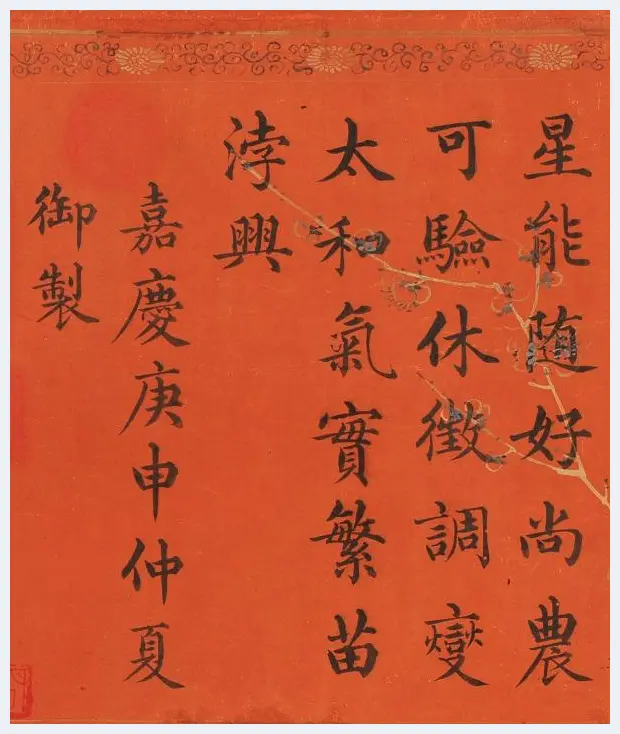 星能随好尚農
可驗休徵調燮
太和氣實繁苗
浡興
嘉慶庚申仲夏
御製